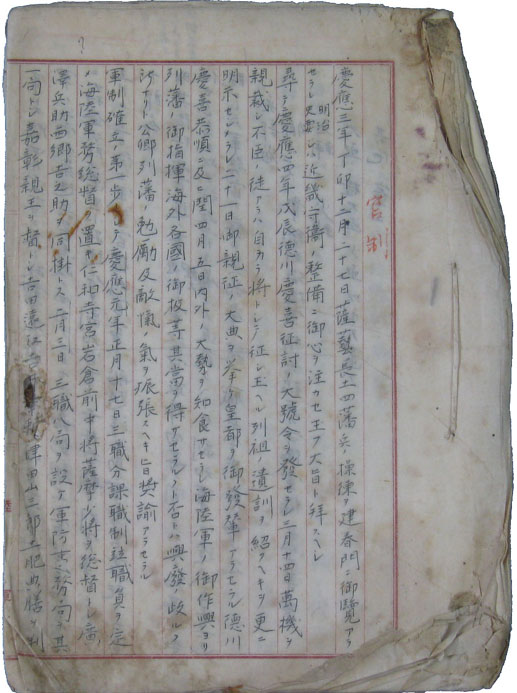 官制
慶應三年丁卯十二月二十七日薩藝長土四藩兵ノ操練ヲ建春門ニ御覽アラ
セラレ明治天皇ハ近畿守衞ノ整備ニ御心ヲ注カセ玉フ大旨ト拜スヘシ
尋テ慶應四年戊辰德川慶喜征討ノ大號令ヲ發セラレ三月十四日萬機ヲ
親裁シ不臣ノ徒アラハ自カラ將トシテ征シ玉ヘル列祖ノ遺訓ヲ紹クヘキヲ更ニ
明示セシメラレ二十一日御親征ノ大典ヲ擧ケ皇都ヲ御發輦アラセラル德川
慶喜恭順ニ及ヒ閏四月五日內外ノ大勢ヲ知食サセラレ海陸軍ノ御作興ヨリ
列藩ノ御指揮海外各國ノ御扱等其當ヲ得サセラルヽト否トハ興廢ノ岐ルヽ
所ナリト公卿列藩ノ勉勵及敵愾ノ氣ヲ振張スヘキ旨奬諭アラセラル
軍制確立ノ第一歩トシテ慶應元年正月十七日三職分課職制竝職員ヲ定
メ海陸軍務總督ヲ置キ仁和寺宮岩倉前中將薩摩少將ヲ總督トシ廣
澤兵助西鄕吉之助ヲ同掛トス二月三日三職八局ヲ設ケ軍防
一局トシ嘉彰親王ヲ督トシ吉田遠江
津田山三郎土肥